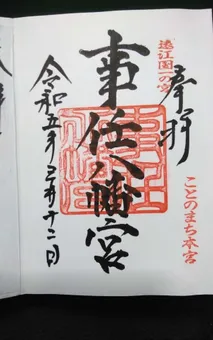 奉拝
遠江国一の宮
ことのまち本宮
事任八幡宮
令和五年三月十二日